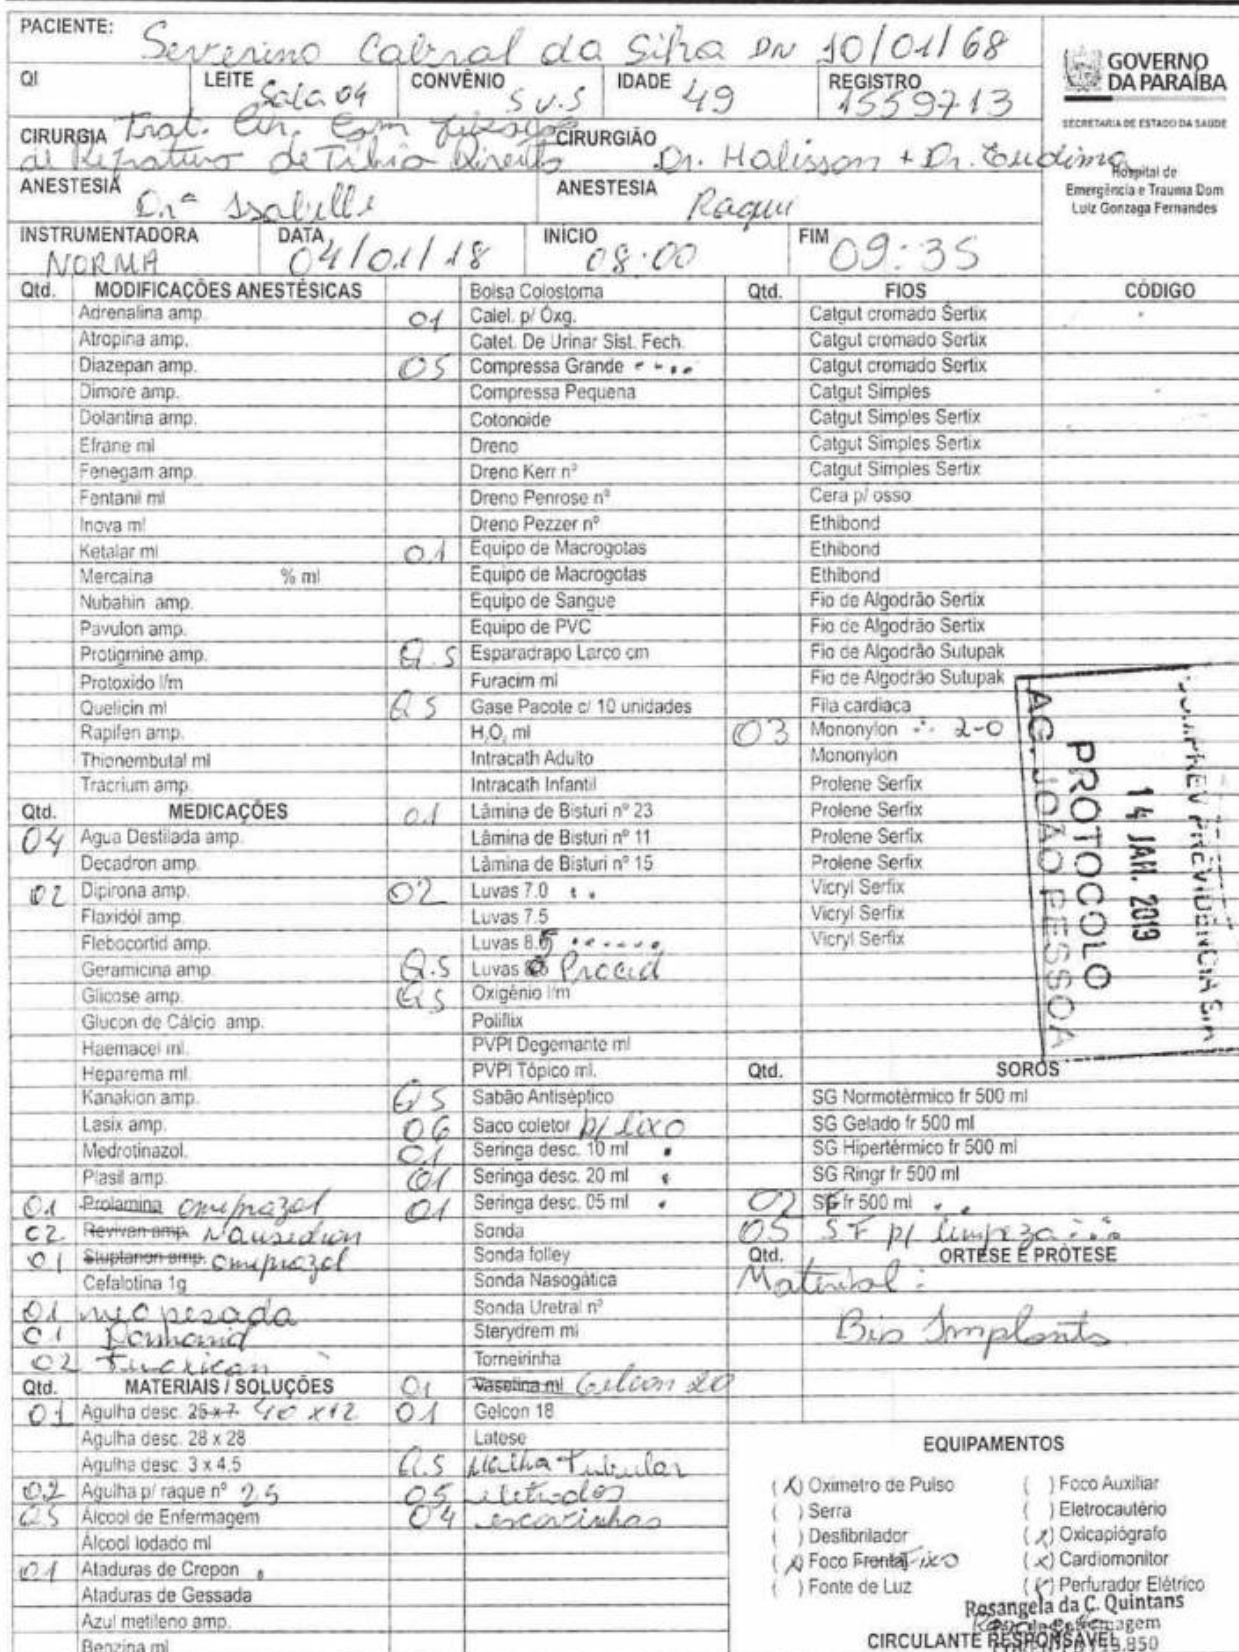 PACIENTE: Severino Cabral da Silva DN 10/01/68
GOVERNO DA PARAÍBA
SECRETARIA DE ESTADO DA SAÚDE
Hospital de Emergência e Trauma Dom Luiz Gonzaga Fernandes
QI LEITE Sala 04 CONVÊNIO S U.S IDADE 49 REGISTRO 1559713
CIRURGIA Trat. Cir. Com fixação
de Tibia Direito
CIRURGIÃO Dr. Halisson + Dr. Eudimo
ANESTESIA Drª Isabelle ANESTESIA Raqui
INSTRUMENTADORA NORMA DATA 04/01/18 INÍCIO 08:00 FIM 09:35
Qtd. MODIFICAÇÕES ANESTÉSICAS
Adrenalina amp.
Atropina amp.
Diazepan amp.
Dimore amp.
Dolantina amp.
Efrane ml
Fenegam amp.
Fentanil ml
Inova ml
Ketalar ml
Mercaina % ml
Nubahin amp.
Pavulon amp.
Protigmine amp.
Protoxido l/m
Quelicin ml
Rapifen amp.
Thionembutal ml
Tracrium amp.
Qtd. MEDICAÇÕES
04 Agua Destilada amp.
Decadron amp.
02 Dipirona amp.
Flaxidól amp.
Flebocortid amp.
Geramicina amp.
Glicose amp.
Glucon de Cálcio amp.
Haemacel ml.
Heparema ml.
Kanakion amp.
Lasix amp.
Medrotinazol.
Plasil amp.
01 Prolamina omeprazol
02 Revivan amp. Nausedron
01 Stuptanon amp. omeprazol
Cefalotina 1g
01 neo pesada
01
02
Qtd. MATERIAIS / SOLUÇÕES
01 Agulha desc. 25 x 7 40 x 12
Agulha desc. 28 x 28
Agulha desc. 3 x 4,5
02 Agulha p/ raque nº 25
Q.S Álcool de Enfermagem
Álcool Iodado ml
01 Ataduras de Crepon
Ataduras de Gessada
Azul metileno amp.
Benzina ml
Bolsa Colostoma
01 Catel. p/ Óxg.
Catet. De Urinar Sist. Fech.
05 Compressa Grande
Compressa Pequena
Cotonoide
Dreno
Dreno Kerr nº
Dreno Penrose nº
Dreno Pezzer nº
01 Equipo de Macrogotas
Equipo de Macrogotas
Equipo de Sangue
Equipo de PVC
Q.S Esparadrapo Larco cm
Furacim ml
Q S Gase Pacote c/ 10 unidades
H₂O₂ ml
Intracath Adulto
Intracath Infantil
01 Lâmina de Bisturi nº 23
Lâmina de Bisturi nº 11
Lâmina de Bisturi nº 15
02 Luvas 7.0
Luvas 7.5
Luvas 8.5
Q.S Luvas Proced
Q S Oxigênio l/m
Poliflix
PVPI Degemante ml
PVPI Tópico ml.
Q S Sabão Antiséptico
06 Saco coletor p/ lixo
01 Seringa desc. 10 ml
01 Seringa desc. 20 ml
01 Seringa desc. 05 ml
Sonda
Sonda folley
Sonda Nasogática
Sonda Uretral nº
Sterydrem ml
Torneirinha
01 Vaselina ml Gelcon 20
01 Gelcon 18
Latese
Q.S Malha Tubular
05 eletrodos
04 escovinhas
Qtd. FIOS CÓDIGO
Catgut cromado Sertix
Catgut cromado Sertix
Catgut cromado Sertix
Catgut Simples
Catgut Simples Sertix
Catgut Simples Sertix
Catgut Simples Sertix
Cera p/ osso
Ethibond
Ethibond
Ethibond
Fio de Algodrão Sertix
Fio de Algodrão Sertix
Fio de Algodrão Sutupak
Fio de Algodrão Sutupak
Fila cardiaca
03 Mononylon 2-0
Mononylon
Prolene Serfix
Prolene Serfix
Prolene Serfix
Prolene Serfix
Vicryl Serfix
Vicryl Serfix
Vicryl Serfix
PREVIDENCIA S/A
14 JAN. 2019
PROTOCOLO
AG. JOÃO PESSOA
Qtd. SOROS
SG Normotérmico fr 500 ml
SG Gelado fr 500 ml
SG Hipertérmico fr 500 ml
SG Ringr fr 500 ml
02 SF fr 500 ml
05 SF p/ limpeza
Qtd. ORTESE E PRÓTESE
Material:
Bio Implants
EQUIPAMENTOS
(X) Oximetro de Pulso ( ) Foco Auxiliar
( ) Serra ( ) Eletrocautério
( ) Desfibrilador (X) Oxicapiógrafo
(X) Foco Frental Fixo (X) Cardiomonitor
( ) Fonte de Luz (X) Perfurador Elétrico
Rosangela da C. Quintans
CIRCULANTE RESPONSÁVEL